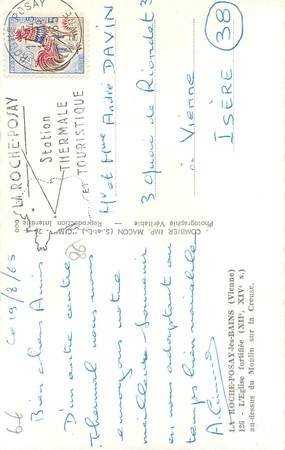 LA ROCHE-POSAY-les-BAINS (Vienne)
126 - L'Eglise fortifiée (XIIe, XIVe s.)
au-dessus du Moulin sur la Creuse.
Ce 19/8/65
Bien chers Amis
D'un autre centre
Thermal nous vous
envoyons notre
meilleur souvenir
en nous adaptant au
temps bien variable
COMBIER IMP. MACON (S.-et-L.) "CIM"
Photographie Véritable - Reproduction Interdite
LA ROCHE-POSAY
Station
THERMALE
ET TOURISTIQUE
Mr et Mme André DAVIN
3 Square de Riondet 3
à Vienne
ISÈRE
38
86